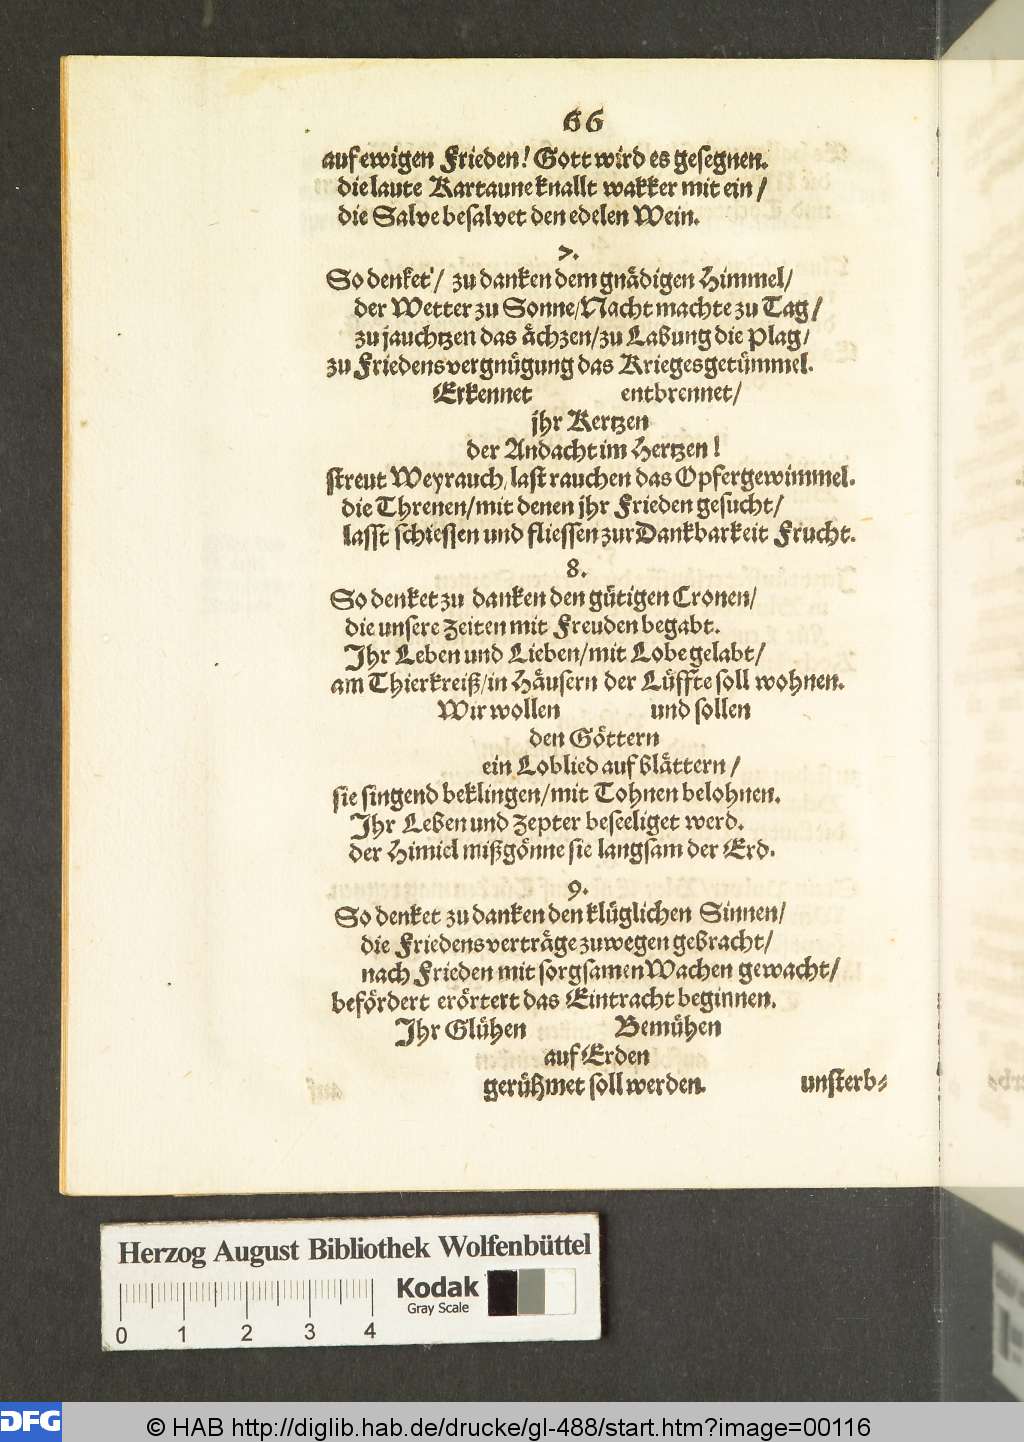 66
auf ewigen Frieden! Gott wird es gesegnen.
die laute Kartaune knallt wakker mit ein /
die Salve besalvet den edelen Wein.
7.
So denket' / zu danken dem gnädigen Himmel /
der Wetter zu Sonne / Nacht machte zu Tag /
zu jauchtzen das ächzen / zu Labung die Plag /
zu Friedensvergnügung das Kriegesgetümmel.
Erkennet entbrennet /
jhr Kertzen
der Andacht im Hertzen!
streut Weyrauch, last rauchen das Opfergewimmel.
die Threnen / mit denen jhr Frieden gesucht /
lasst schiessen und fliessen zur Dankbarkeit Frucht.
8.
So denket zu danken den gütigen Cronen /
die unsere Zeiten mit Freuden begabt.
Ihr Leben und Lieben / mit Lobe gelabt /
am Thierkreiß / in Häusern der Lüffte soll wohnen.
Wir wollen und sollen
den Göttern
ein Loblied auf Blättern /
sie singend beklingen / mit Tohnen belohnen.
Ihr Leben und Zepter beseeliget werd.
der Himiel mißgönne sie langsam der Erd.
9.
So denket zu danken den klüglichen Sinnen /
die Friedensverträge zuwegen gebracht /
nach Frieden mit sorgsamen Wachen gewacht /
befördert erörtert das Eintracht beginnen.
Ihr Glühen Bemühen
auf Erden
gerühmet soll werden.
unsterb-
Herzog August Bibliothek Wolfenbüttel
Kodak
Gray Scale
0 1 2 3 4
DFG
© HAB http://diglib.hab.de/drucke/gl-488/start.htm?image=00116